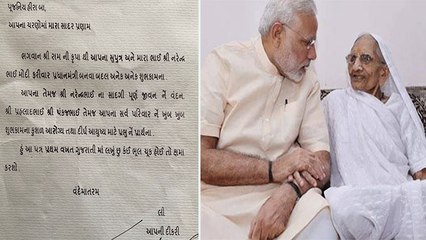 પૂજનિય હીરા બા,
આપના ચરણોમાં મારા સાદર પ્રણામ
ભગવાન શ્રી રામ ની કૃપા થી આપના સુપુત્ર અને મારા ભાઈ શ્રી નરેન્દ્ર
ભાઈ મોદી ફરીવાર પ્રધાનમંત્રી બનવા બદલ અનેક અનેક શુભકામના
આપના તેમજ શ્રી નરેન્દ્રભાઈ ના સાદગી પૂર્ણ જીવન ને વંદન.
શ્રી પહ્લાદભાઈ શ્રી પંકજભાઈ તેમજ આપના સર્વ પરિવાર ને ખુબ ખુબ
શુભકામના કુશળ આરોગ્ય તથા દીર્ઘ આયુષ્ય માટે પ્રભુ ને પ્રાર્થના.
હું આ પત્ર પ્રથમ વખત ગુજરાતી માં લખું છુ કંઈ ભૂલ ચૂક હોઈ તો ક્ષમા
કરશો.
વંદેમાતરમ
લી
આપની દીકરી